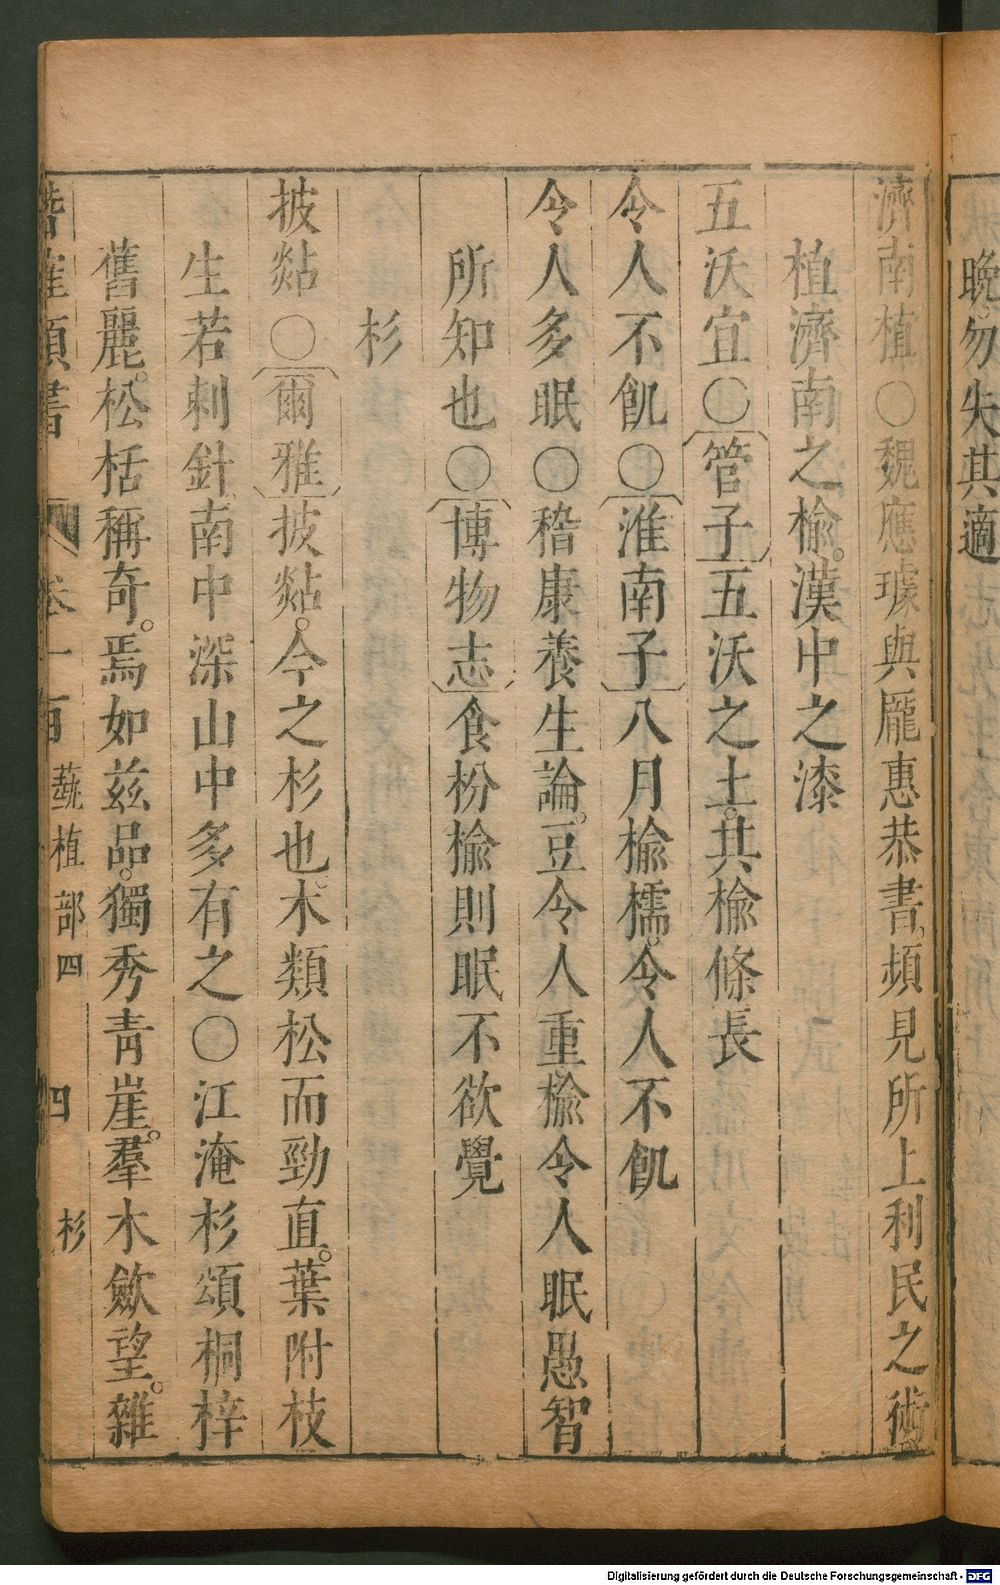 晚勿失其適
濟南植○魏應璩與龐惠恭書頻見所上利民之術
植濟南之榆漢中之漆
五沃宜○管子五沃之土其榆條長
令人不飢○淮南子八月榆檽令人不飢
令人多眠○稽康養生論豆令人重榆令人眠愚智
所知也○博物志食枌榆則眠不欲覺
杉
披㸃○爾雅披㸃今之杉也木類松而勁直葉附枝
生若刺針南中深山中多有之○江淹杉頌桐梓
舊麗松栝稱奇焉如茲品獨秀青崖羣木歛望雜
卷一百 蓺植部四 四 杉
Digitalisierung gefördert durch die Deutsche Forschungsgemeinschaft - DFG